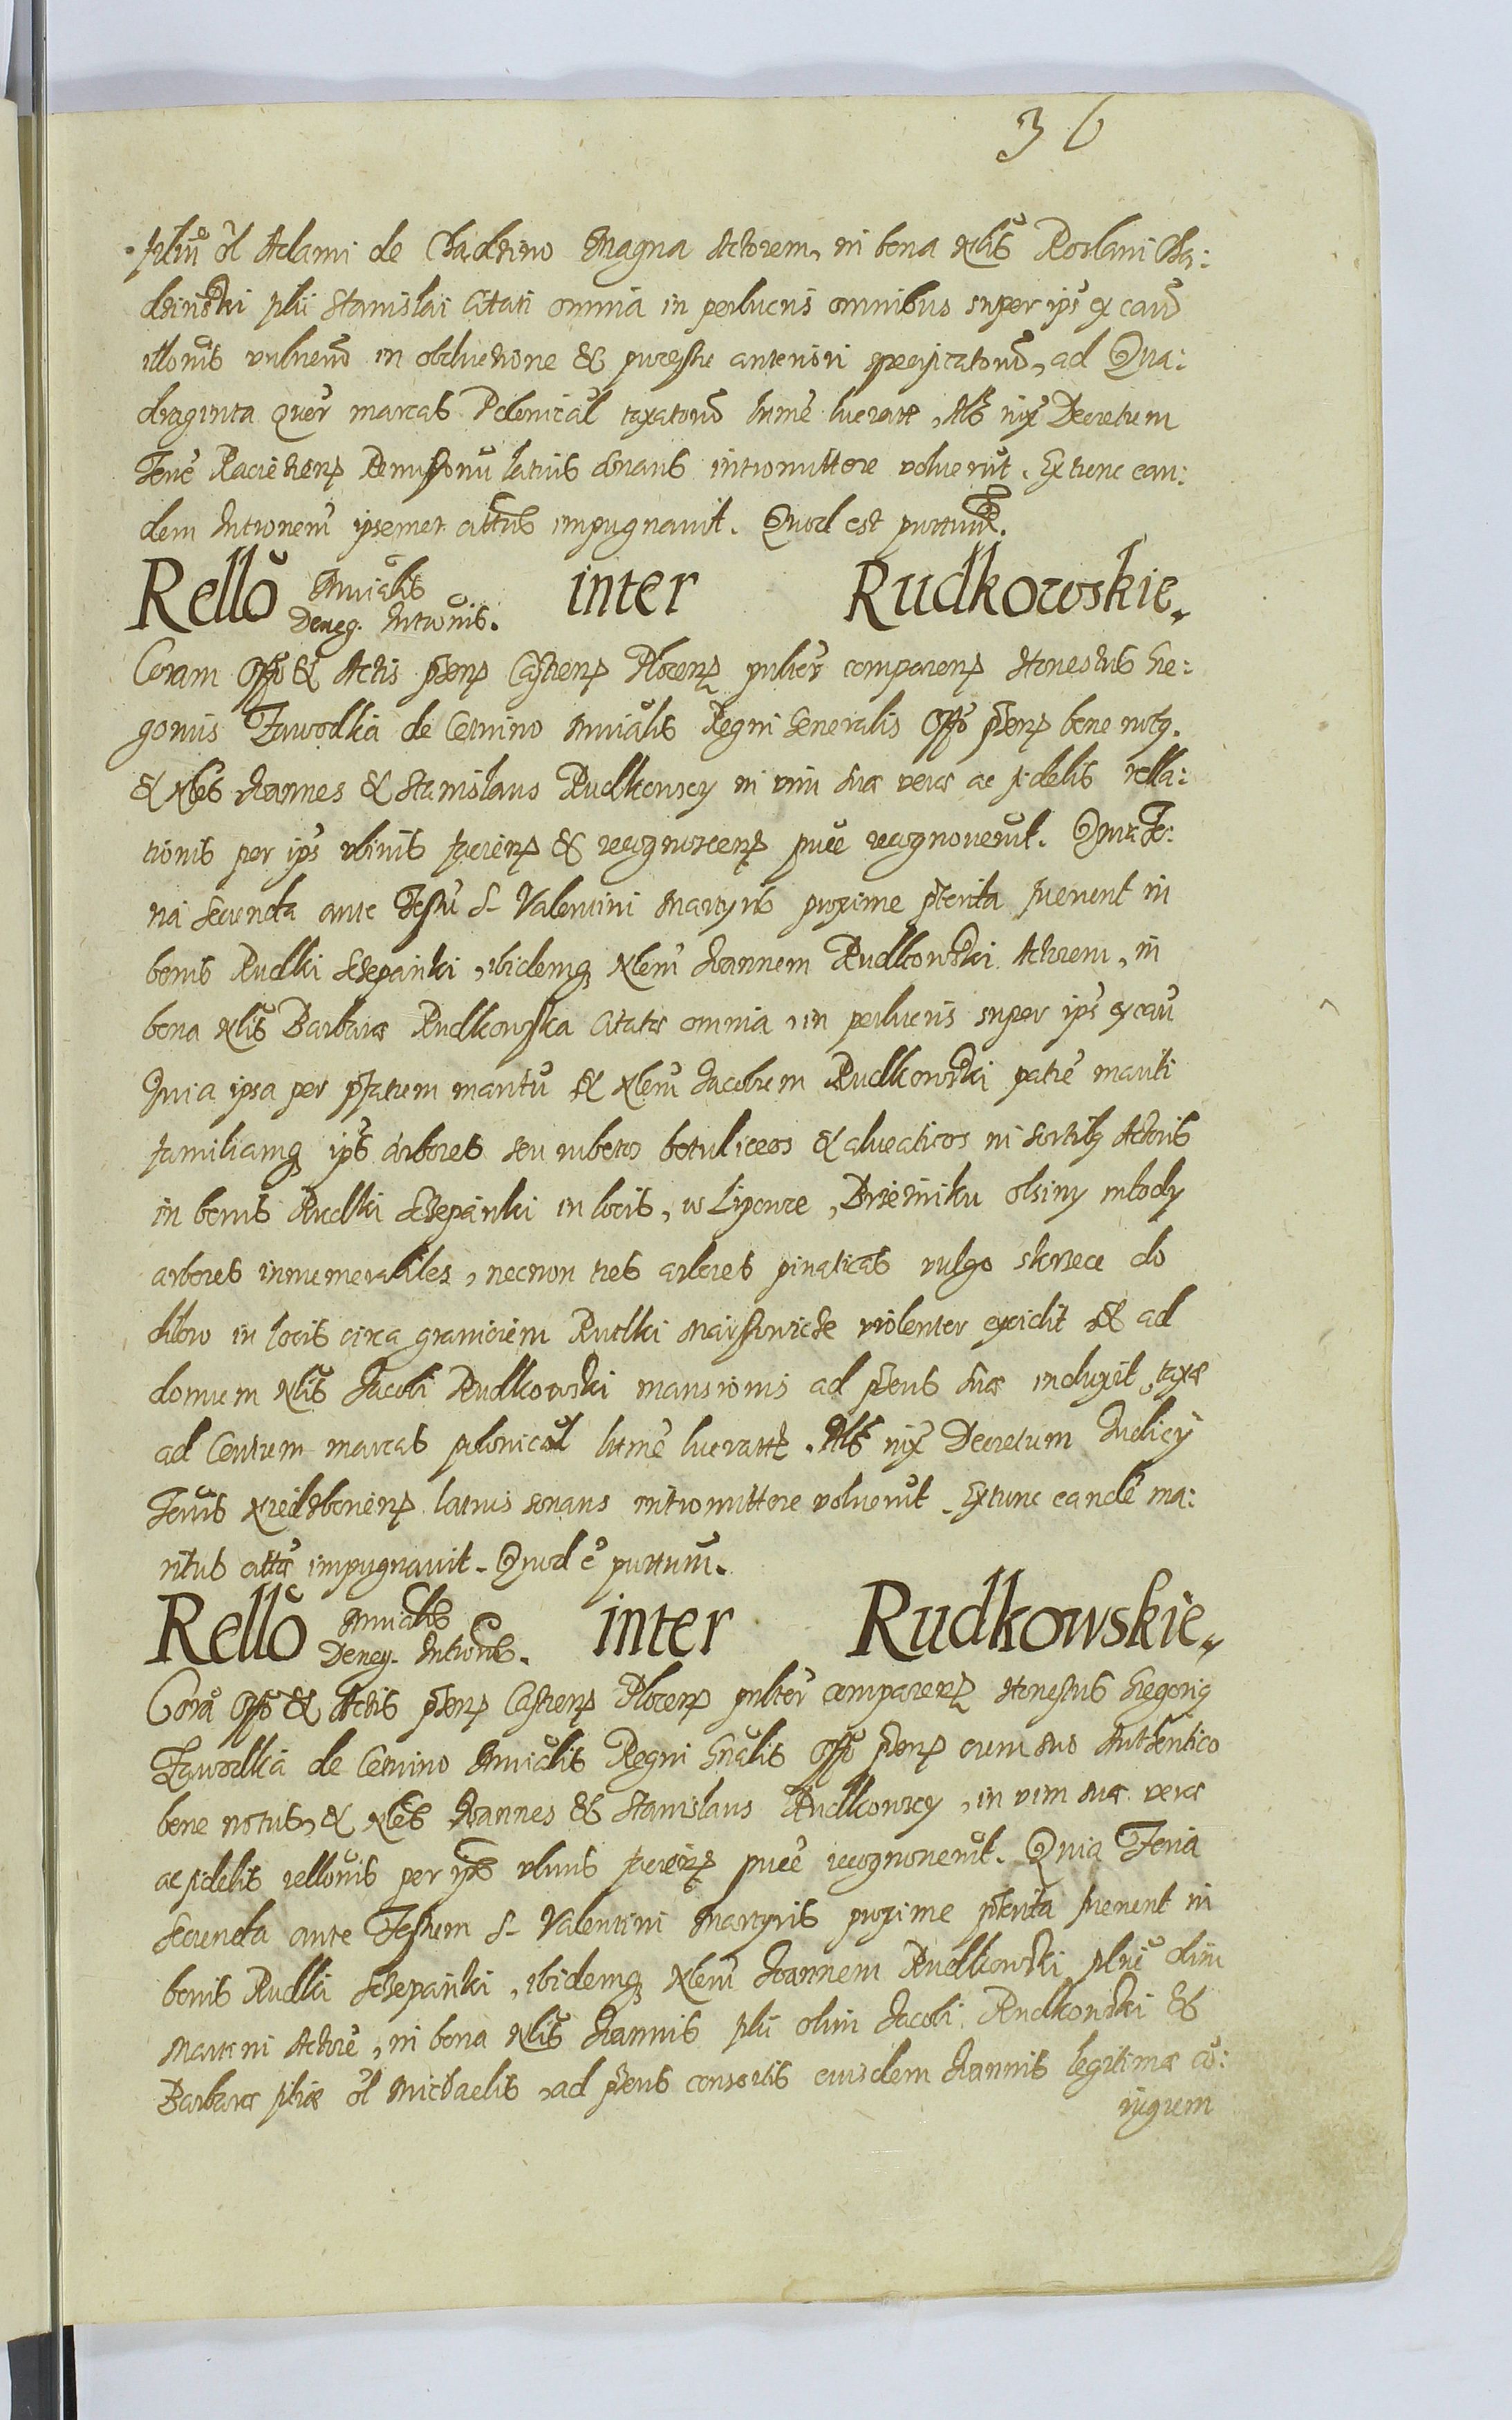 36
filiũ ol Adami de Chudzino Magna Actorem, in bona Nlis Roslani Chu:
dzinski filii Stanislai Citati omnia in perlucris omnibus super ips ex cau
illonis vulnerũ in obductione & processu anteriori specificatorũ, ad Qua:
draginta quer marcas Polonical taxatorũ summe lucratte, Als nix Decretum
Terre Raciezens Remissonu latius sonans intromittere voluerut. Extunc ean:
dem Intronem ipsemet cittus impugnavit. Quod est puttum.
Rello Mnialis Deneg. Intronis. inter Rudkowskie
Coram Offo & Actis pñens Castrens Plocens pulicer comparens Honestus Gre:
gorius Zawodka de Cetnino Mnialis Regni Generalis Offo pñens bene notg.
& Nles Joannes & Stanislaus Rudkowscy in vim suæ veræ ac fidelis rella:
tionis per ips ibinis faciens & recognoscens puce recognoverut. Quia Fe:
ria Secunda ante Festũ S. Valentini Martyris proxime pterita fuerunt in
bonis Rudki Sczepanki, ibidemq Nlem Joannem Rudkowski Actorem, in
bona Nlis Barbaræ Rudkowska Citatæ omnia, in perlucris super ips excau
Quia ipsa per pfatum maritũ & Nlem Jacobum Rudkowski patrẽ mariti
familiamq ips arbores seu rubetos betuliceos & alveaticos in sortibq Actoris
in bonis Rudki Sczepanki in locis, w Lipowce, Brzezniku olsiny mlody
arbores innumerabiles, necnon tres arbores pinaticas vulgo skrzece do
dilow in locis circa graniciem Rudki Marssowicze violenter excidit & ad
domum Nlis Jacobi Rudkowski mansionis ad pñens suæ induxit, taxæ
ad Centum marcas polonical summe lucratte. Als nix Decretum Judicy
Terris latius sonans intromittere voluerut. Extunc eandẽ ma:
ritus cittæ impugnavit. Quod ẽ puttum.
Rello Mnialis Deneg. Intronis. inter Rudkowskie
Corã Offo & Actis pñens Castrens Plocens pulicer comparens Honestus Gregorig
Zawodka de Cetnino Mnialis Regni Gnalis Offo pñens cum suo Authentico
bene notus, & Nles Joannes & Stanislaus Rudkowscy, in vim suæ veræ
ac fidelis rellonis per ips ibinis faciens puce recognoverut. Quia Feria
Secunda ante Festum S. Valentini Martyris proxime pterita fuerunt in
bonis Rudki Sczepanki, ibidemq Nlem Joannem Rudkowski filiũ olim
Martini Actorẽ, in bona Nlis Joannis filii olim Jacobi Rudkowski &
Barbaræ filiæ ol Michaelis, ad pñens consortis eiusdem Joannis legitimæ cõ:
iugum